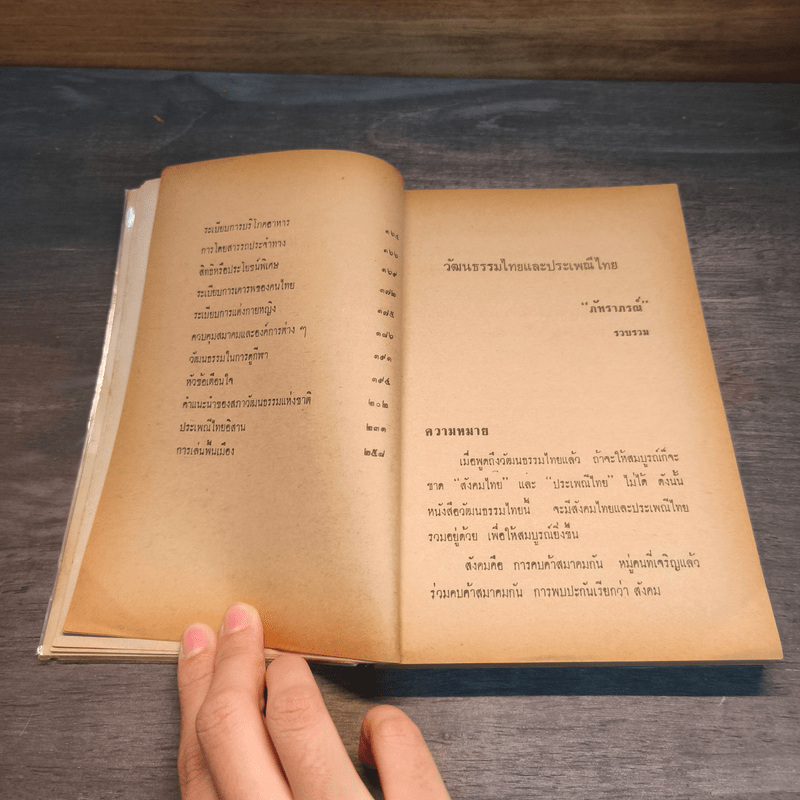 ระเบียบการบริโภคอาหาร ๑๖๔
การโดยสารรถประจำทาง ๑๖๖
สิทธิหรือประโยชน์พิเศษ ๑๖๙
ระเบียบการเคารพของคนไทย ๑๗๒
ระเบียบการแต่งกายหญิง ๑๗๕
ควบคุมสมาคมและองค์การต่าง ๆ ๑๘๖
วัฒนธรรมในการดูกีฬา ๑๙๑
หัวข้อเตือนใจ ๑๙๔
คำแนะนำของสภาวัฒนธรรมแห่งชาติ ๒๐๒
ประเพณีไทยอิสาน ๒๓๑
การเล่นพื้นเมือง ๒๕๘
วัฒนธรรมไทยและประเพณีไทย
“ภัทราภรณ์”
รวบรวม
ความหมาย
เมื่อพูดถึงวัฒนธรรมไทยแล้ว ถ้าจะให้สมบูรณ์ก็จะ
ขาด “สังคมไทย” และ “ประเพณีไทย” ไม่ได้ ดังนั้น
หนังสือวัฒนธรรมไทยนี้ จะมีสังคมไทยและประเพณีไทย
รวมอยู่ด้วย เพื่อให้สมบูรณ์ยิ่งขึ้น
สังคมคือ การคบค้าสมาคมกัน หมู่คนที่เจริญแล้ว
ร่วมคบค้าสมาคมกัน การพบปะกันเรียกว่า สังคม